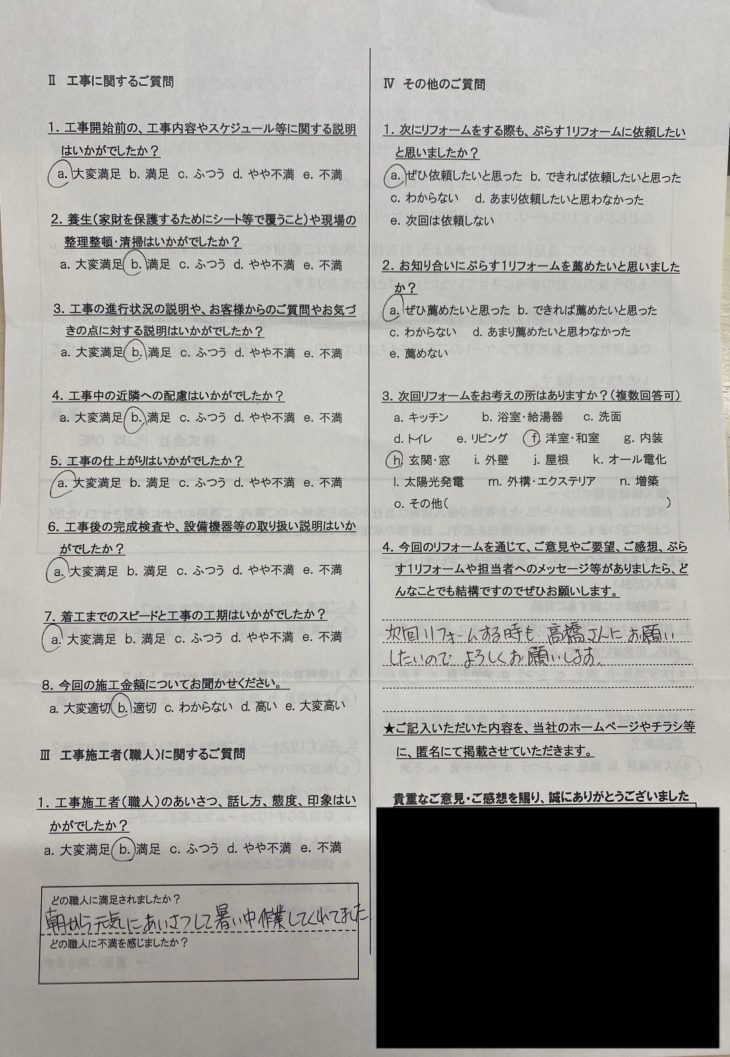 Ⅱ 工事に関するご質問
1. 工事開始前の、工事内容やスケジュール等に関する説明
はいかがでしたか?
a. 大変満足 b. 満足 c. ふつう d. やや不満 e. 不満
2. 養生(家財を保護するためにシート等で覆うこと)や現場の
整理整頓・清掃はいかがでしたか?
a. 大変満足 b. 満足 c. ふつう d. やや不満 e. 不満
3. 工事の進行状況の説明や、お客様からのご質問やお気づ
きの点に対する説明はいかがでしたか?
a. 大変満足 b. 満足 c. ふつう d. やや不満 e. 不満
4. 工事中の近隣への配慮はいかがでしたか?
a. 大変満足 b. 満足 c. ふつう d. やや不満 e. 不満
5. 工事の仕上がりはいかがでしたか?
a. 大変満足 b. 満足 c. ふつう d. やや不満 e. 不満
6. 工事後の完成検査や、設備機器等の取り扱い説明はいか
がでしたか?
a. 大変満足 b. 満足 c. ふつう d. やや不満 e. 不満
7. 着工までのスピードと工事の工期はいかがでしたか?
a. 大変満足 b. 満足 c. ふつう d. やや不満 e. 不満
8. 今回の施工金額についてお聞かせください。
a. 大変適切 b. 適切 c. わからない d. 高い e. 大変高い
Ⅲ 工事施工者(職人)に関するご質問
1. 工事施工者(職人)のあいさつ、話し方、態度、印象はい
かがでしたか?
a. 大変満足 b. 満足 c. ふつう d. やや不満 e. 不満
どの職人に満足されましたか?
朝から元気にあいさつして暑い中作業してくれてました
どの職人に不満を感じましたか?
Ⅳ その他のご質問
1. 次にリフォームをする際も、ぷらす1リフォームに依頼したい
と思いましたか?
a. ぜひ依頼したいと思った b. できれば依頼したいと思った
c. わからない d. あまり依頼したいと思わなかった
e. 次回は依頼しない
2. お知り合いにぷらす1リフォームを薦めたいと思いました
か?
a. ぜひ薦めたいと思った b. できれば薦めたいと思った
c. わからない d. あまり薦めたいと思わなかった
e. 薦めない
3. 次回リフォームをお考えの所はありますか?(複数回答可)
a. キッチン b. 浴室・給湯器 c. 洗面
d. トイレ e. リビング f. 洋室・和室 g. 内装
h. 玄関・窓 i. 外壁 j. 屋根 k. オール電化
l. 太陽光発電 m. 外構・エクステリア n. 増築
o. その他( )
4. 今回のリフォームを通じて、ご意見やご要望、ご感想、ぷら
す1リフォームや担当者へのメッセージ等がありましたら、ど
んなことでも結構ですのでぜひお願いします。
次回リフォームする時も高橋さんにお願い
したいので よろしくお願いします。
★ご記入いただいた内容を、当社のホームページやチラシ等
に、匿名にて掲載させていただきます。
貴重なご意見・ご感想を賜り、誠にありがとうございました